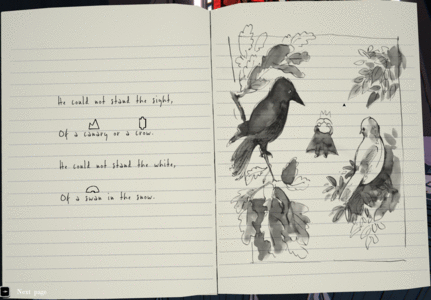 He could not stand the sight,
Of a canary or a crow.
He could not stand the white,
Of a swan in the snow.
Next page